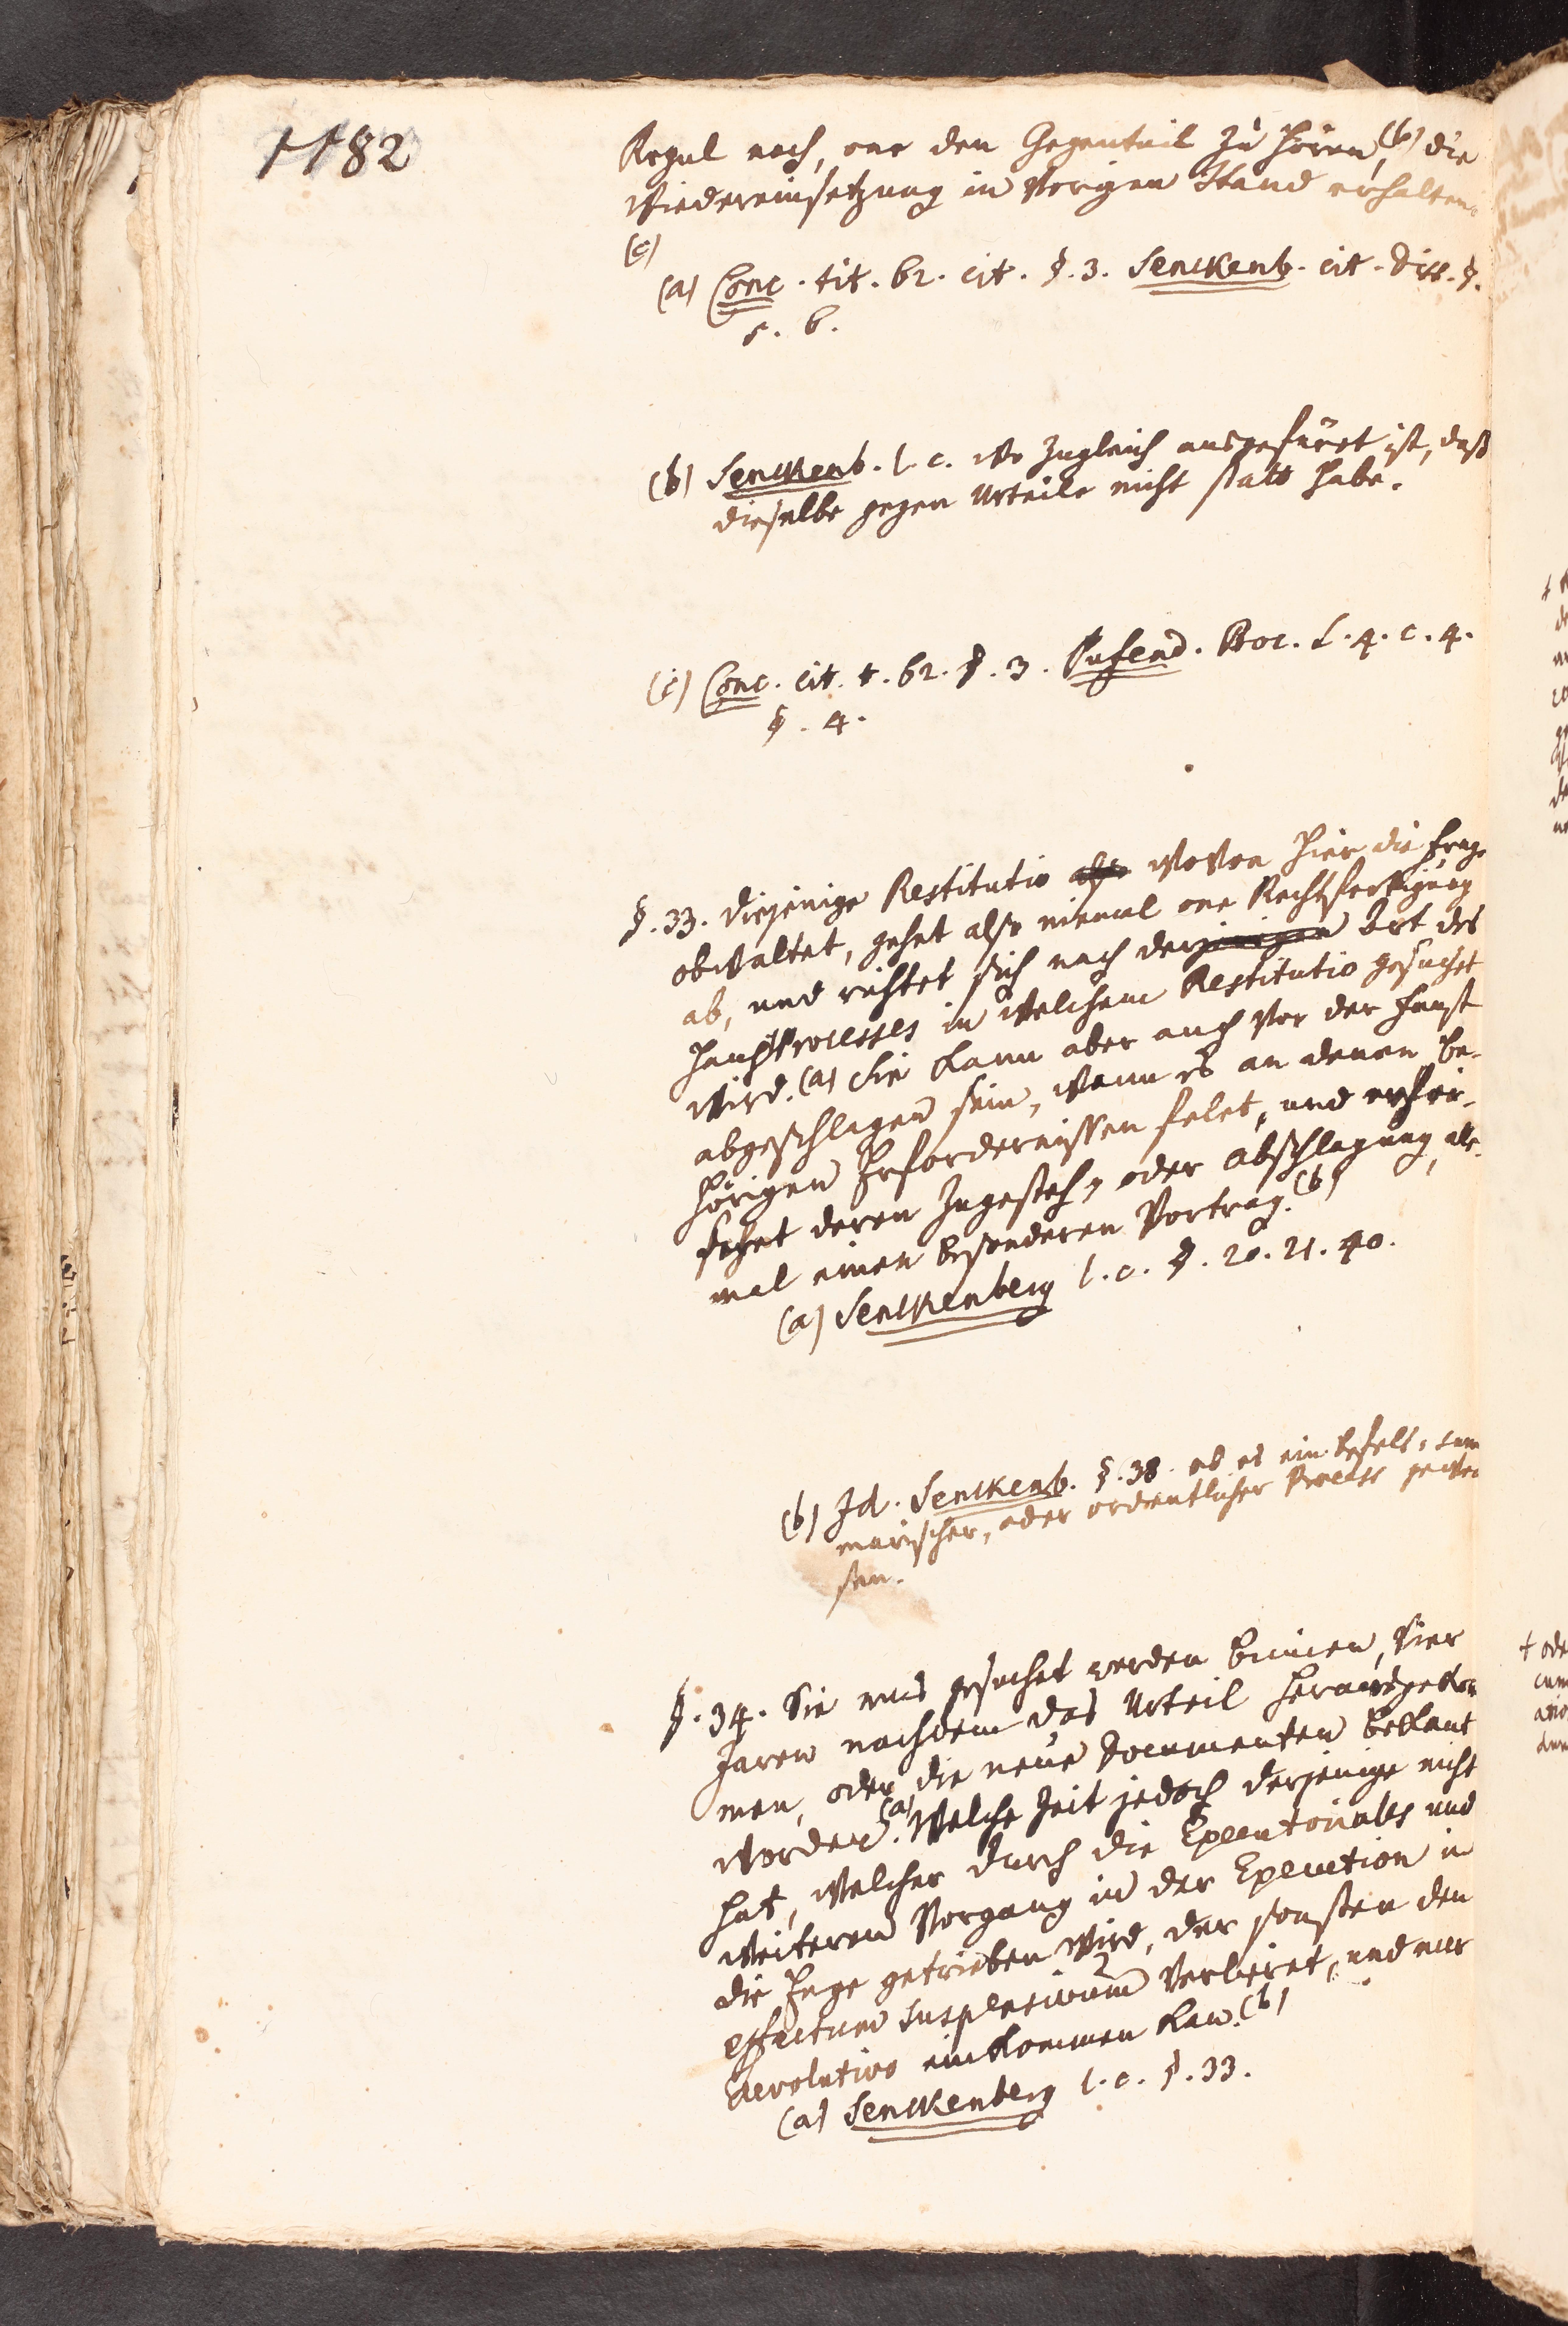 1182
Regul nach, one den Gegenteil zu hören, (b) die
Wiedereinsetzung in Vorigen Stand erhalten.
(c)
(a) Conc. tit. 62. cit. §. 3. Senckenb. cit. Diss. §.
5. 6.
(b) Senckenb. l. c. wo zugleich ausgefüret ist, daß
dieselbe gegen Urteile nicht statt habe.
(c) Conc. cit. t. 62. §. 3. Pufend. Proc. L. 4. c. 4.
§. 4.
§. 33. diejenige Restitutio also wovon hier die frage
obwaltet, gehet also niemal one Rechtfertigung
ab, und richtet sich nach derjenigen Art des
Hauptprocesses in welchem Restitutio gesuchet
wird. (a) Sie kann aber auch vor der Faust
abgeschlagen sein, wenn es an denen be-
hörigen Erfordernissen felet, und erfor-
dert deren Zugesteh- oder abschlagung, alle-
mal einen besonderen Vortrag. (b)
(a) Senckenberg l. c. §. 20. 21. 40.
(b) Id. Senckenb. §. 38. ob es ein befels, sum
marischer, oder ordentlicher Process gewe
sen.
§. 34. Sie mus gesuchet werden binnen Vier
Jaren nachdem das Urteil herausgekom
men, oder die neue Documenten bekant
worden. (a) Welche Zeit jedoch derjenige nicht
hat, welcher durch die Executoriales und
weiteren Vorgang in der Execution in
die Enge getrieben wird, der sonsten den
effectum suspensivum verlieret, und nur
devolutive einkommen kan. (b)
(a) Senckenberg l. c. §. 33.